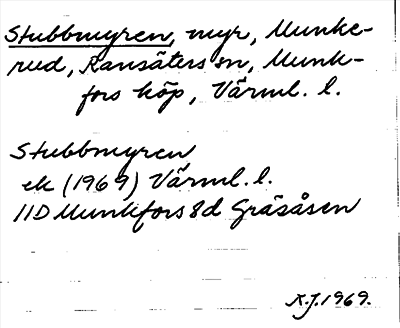 Stubbmyren, myr, Munke-
rud, Ransäters sn, Munk-
fors köp, Värml. l.
Stubbmyren
ek (1969) Värml. l.
11D Munkfors 8d Gräsåsen
R.J. 1969.